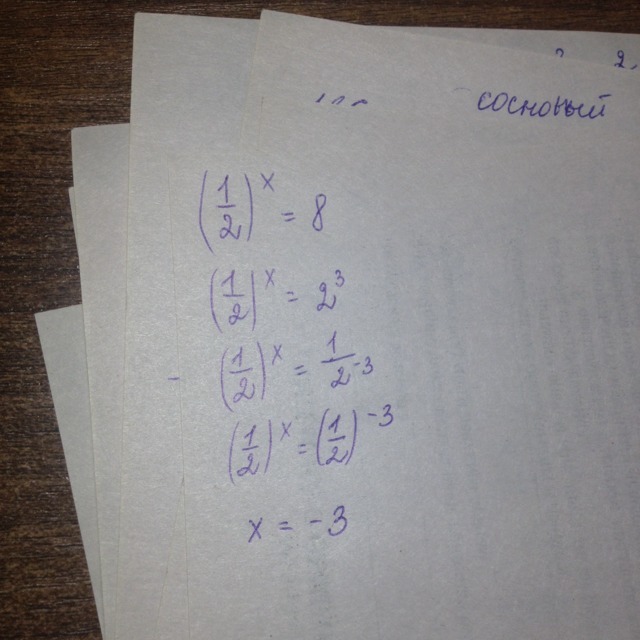 2.
сосновый
(1/2)^x = 8
(1/2)^x = 2^3
(1/2)^x = 1/2^-3
(1/2)^x = (1/2)^-3
x = -3